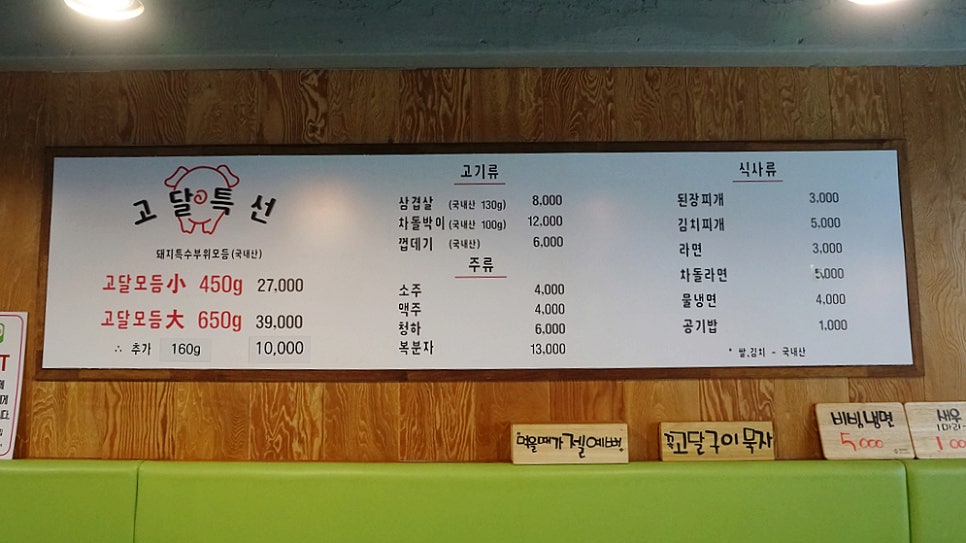 고달특선
돼지특수부위모듬 (국내산)
고달모듬小 450g 27,000
고달모듬大 650g 39,000
∴ 추가 160g 10,000
고기류
삼겹살 (국내산 130g) 8,000
차돌박이 (국내산 100g) 12,000
껍데기 (국내산) 6,000
주류
소주 4,000
맥주 4,000
청하 6,000
복분자 13,000
식사류
된장찌개 3,000
김치찌개 5,000
라면 3,000
차돌라면 5,000
물냉면 4,000
공기밥 1,000
* 쌀,김치 - 국내산
먹을때가 젤예뻐
고달구이 묵자
비빔냉면
5,000
새우
1마리